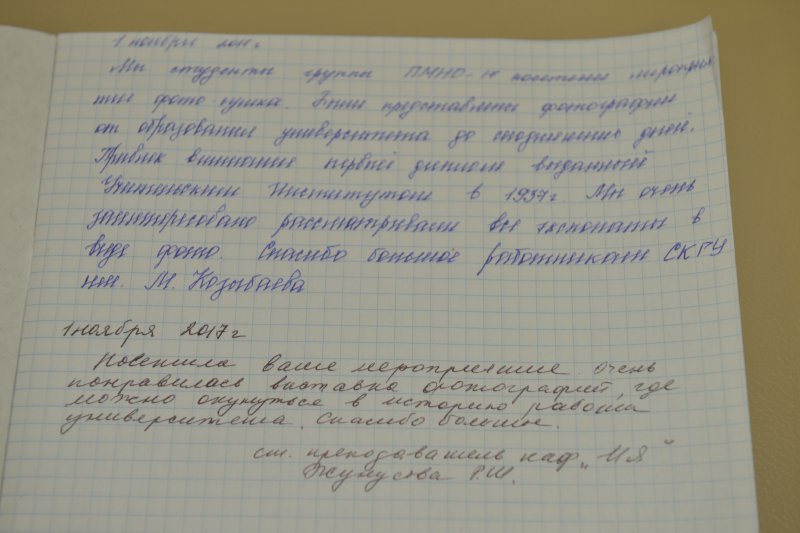 1 ноября 2017г.
Мы студенты группы ПМНО-17 посетили мероприя
тие фото сушка. Были представлены фотографии
от образования университета до сегодняшних дней.
Привлек внимание первый диплом выданный
Учительским Институтом в 1937г. Мы очень
заинтересовано рассматривали все экспонаты в
виде фото. Спасибо большое работникам СКГУ
им. М. Козыбаева
1 ноября 2017г
Посетила ваше мероприятие. Очень
понравилась выставка фотографий, где
можно окунуться в историю работы
университета. Спасибо большое.
ст. преподаватель каф „ИЯ"
Жунусова Р.Ш.